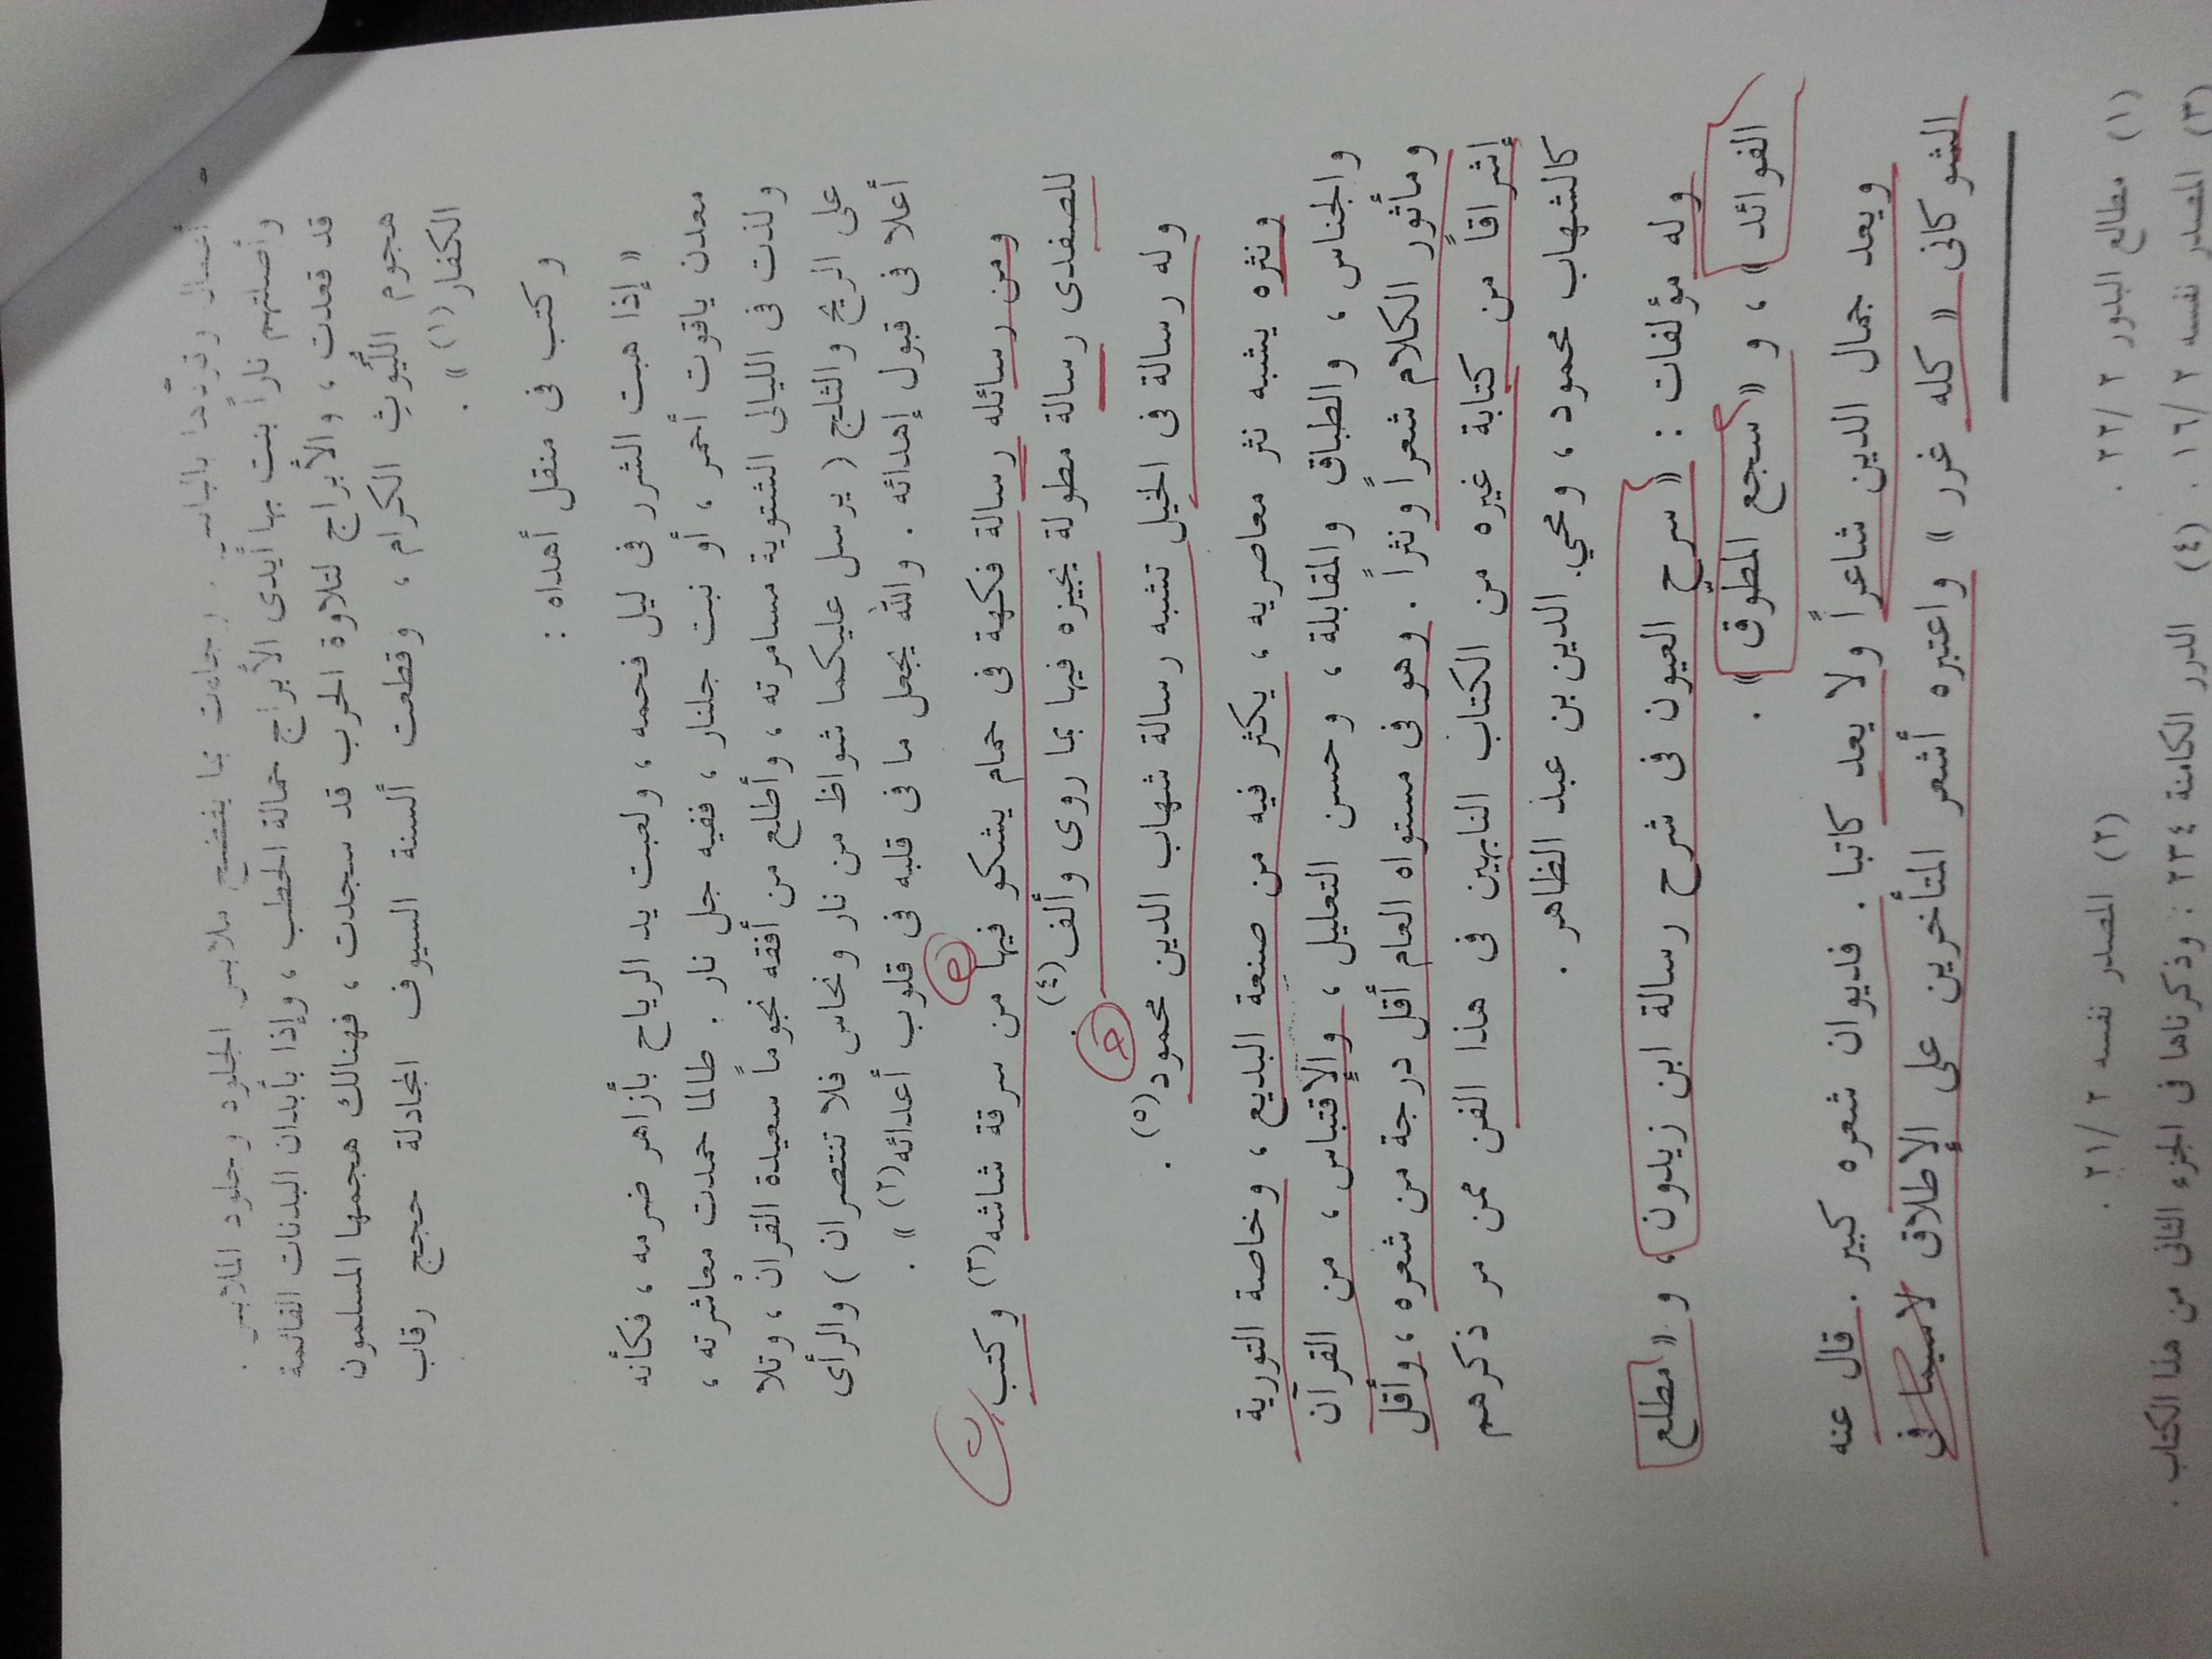 أغسال وفردها بالباس . وجاءت بما يفتتح ملابس الجلود وجلود الملابس :
وأصلتهم ناراً بنت بها أيدى الأبراج حمالة الحطب ، وإذا بأبدان البدنات القائمة
قد قعدت ، والأبراج لتلاوة الحرب قد سجدت ، فهنالك هجمها المسلمون
هجوم اللُّيوثِ الكرام ، وقطعت ألسنة السيوف المجادلة حجج رقاب
الكفار (١) » .
وكتب فى منقل أهداه :
« إذا هبت الشرر فى ليل فحمه ، ولعبت يد الرياح بأزاهر ضرمه ، فكأنه
معدن ياقوت أحمر ، أو نبت جلنار ، ففيه جل نار : طالما حمدت معاشرته ،
ولذت فى الليالى الشتوية مسامرته ، وأطلع من أفقه نجوماً سعيدة القران ، وتلا
على الريح والثلج ( يرسل عليكما شواظ من نار ونحاس فلا تنتصران ) والرأى
أعلا فى قبول إهدائه . والله يجعل ما فى قلبه فى قلوب أعدائه (٢) » .
ومن رسائله رسالة فكهة فى حمام يشكو فيها من سرقة شاشه (٣) وكتب
للصفدى رسالة مطولة يجيزه فيها بما روى وألف (٤)
وله رسالة فى الخيل تشبه رسالة شهاب الدين محمود (٥) .
ونثره يشبه نثر معاصريه ، يكثر فيه من صنعة البديع ، وخاصة التورية
والجناس ، والطباق والمقابلة ، وحسن التعليل ، والإقتباس ، من القرآن
ومأثور الكلام شعراً ونثراً . وهو فى مستواه العام أقل درجة من شعره ، وأقل
إشراقاً من كتابة غيره من الكتاب النابهين فى هذا الفن ممن مر ذكرهم
كالشهاب محمود ، ومحي الدين بن عبد الظاهر .
وله مؤلفات : « سرح العيون فى شرح رسالة ابن زيدون » و « مطلع
الفوائد » ، و « سجع المطوق » .
ويعد جمال الدين شاعراً ولا يعد كاتبا . فديوان شعره كبير . قال عنه
الشوكانى « كله غرر » واعتبره أشعر المتأخرين على الإطلاق لاسيما فى
(١) مطالع البدور ٢ / ٢٢ .
(٢) المصدر نفسه ٢ / ٢١ .
(٣) المصدر نفسه ٢ / ١٦ .
(٤) الدرر الكامنة ٢٣٤ : وذكرناها فى الجزء الثانى من هذا الكتاب .